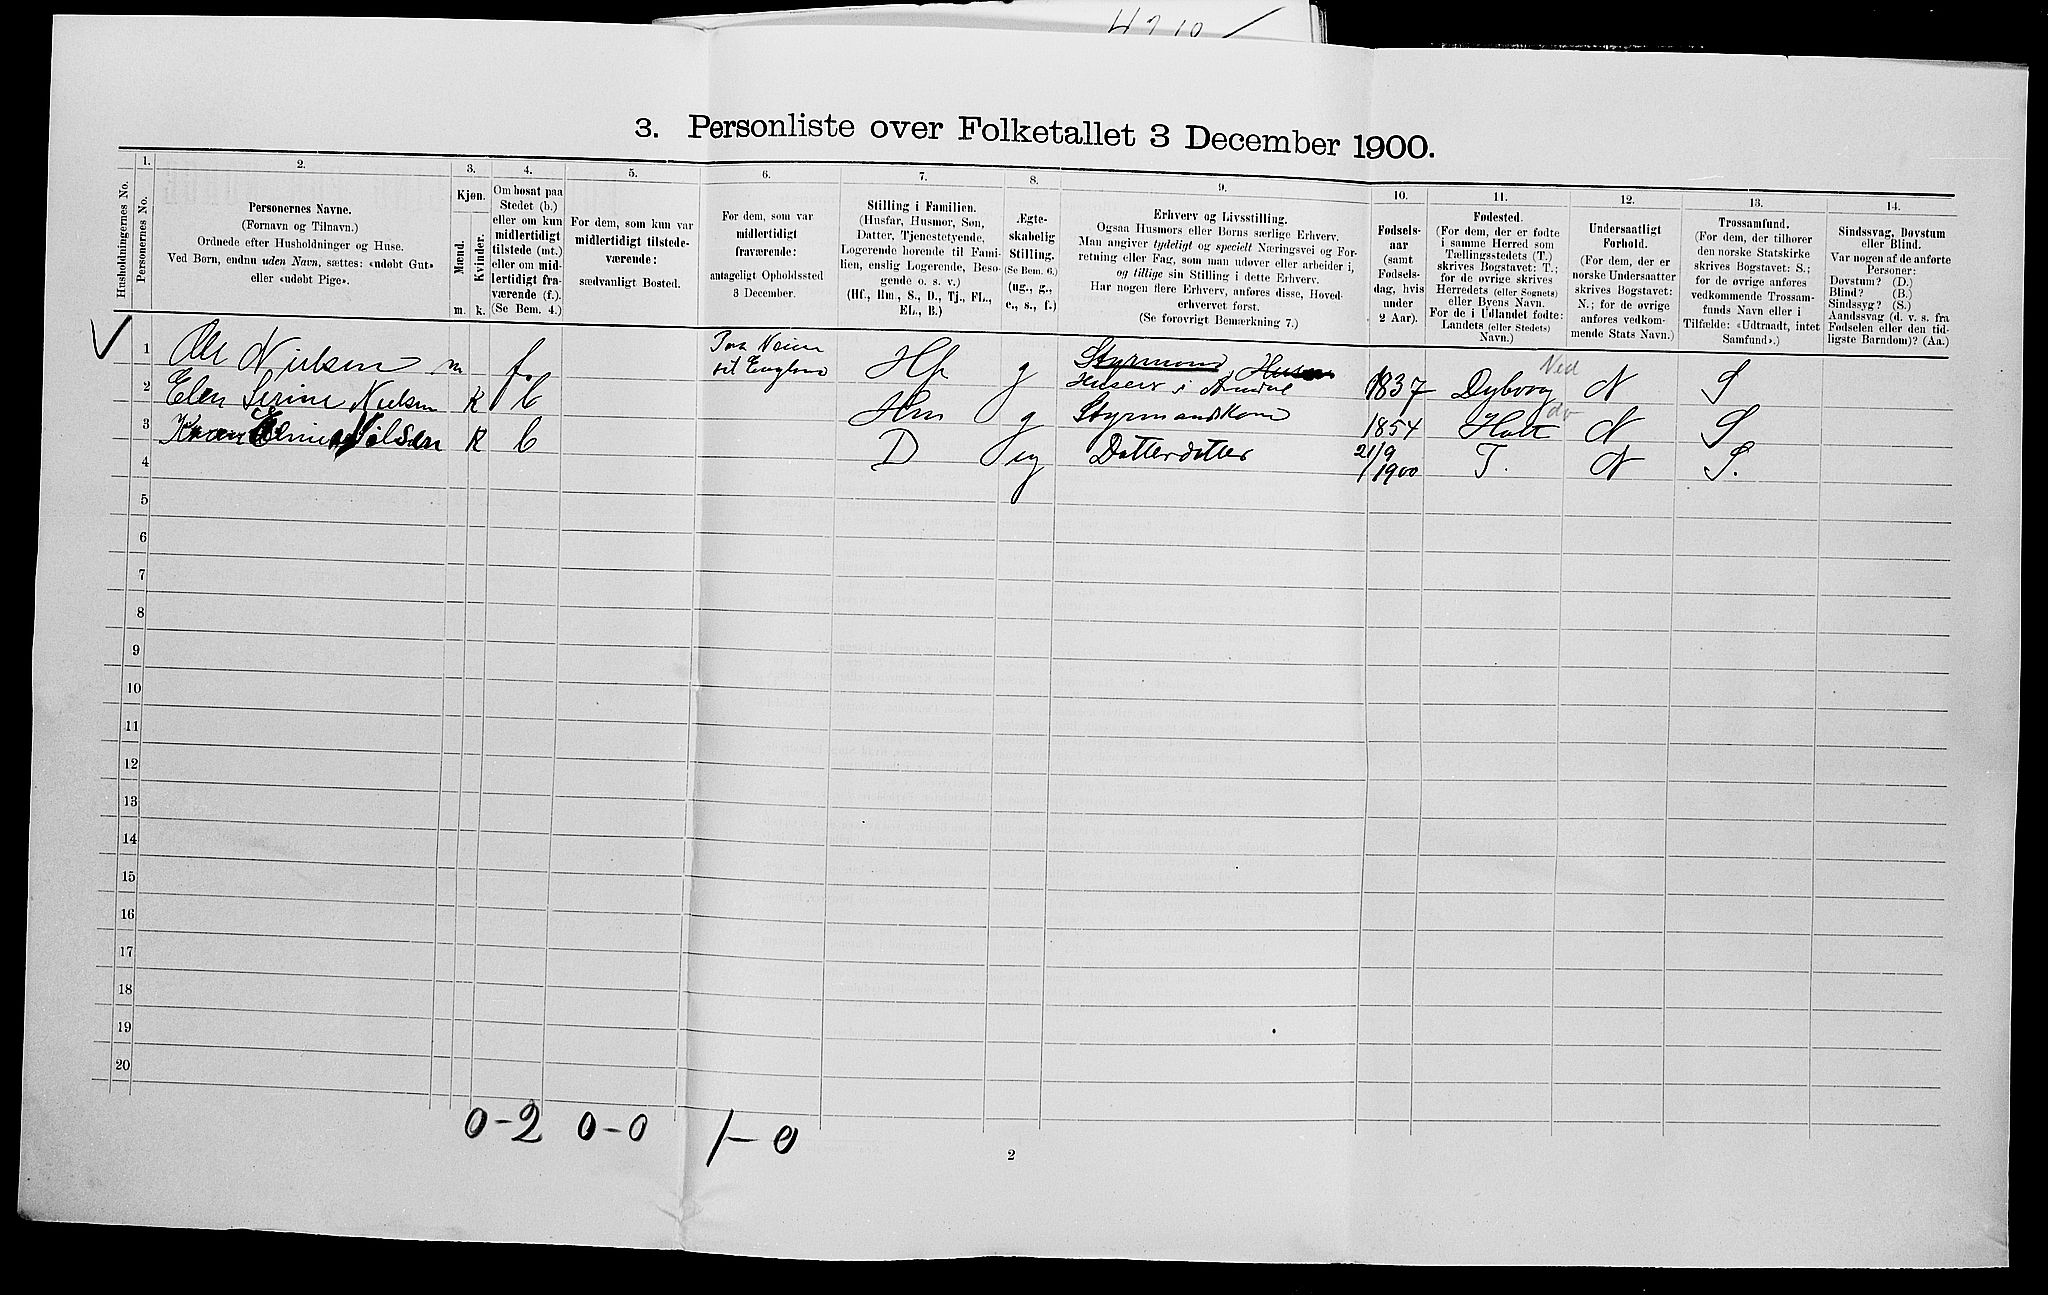 4210
3. Personliste over Folketallet 3 December 1900.
Husholdningernes No.
1.
Personernes No.
2.
Personernes Navne.
(Fornavn og Tilnavn.)
Ordnede efter Husholdninger og Huse.
Ved Børn, endnu uden Navn, sættes: «udøbt Gut»
eller «udøbt Pige».
3.
Kjøn.
Mænd.
Kvinder.
m. k.
4.
Om bosat paa
Stedet (b.)
eller om kun
midlertidigt
tilstede (mt.)
eller om mid-
lertidigt fra-
værende (f.).
(Se Bem. 4.)
5.
For dem, som kun var
midlertidigt tilstede-
værende:
sædvanligt Bosted.
6.
For dem, som var
midlertidigt
fraværende:
antageligt Opholdssted
3 December.
7.
Stilling i Familien.
(Husfar, Husmor, Søn,
Datter, Tjenestetyende,
Logerende hørende til Fami-
lien, enslig Logerende, Besø-
gende o. s. v.)
(Hf., Hm., S., D., Tj., FL.,
EL., B.)
8.
Ægte-
skabelig
Stilling.
(Se Bem. 6.)
(ug., g.,
e., s., f.)
9.
Erhverv og Livsstilling.
Ogsaa Husmors eller Børns særlige Erhverv.
Man angiver tydeligt og specielt Næringsvei og For-
retning eller Fag, som man udøver eller arbeider i,
og tillige sin Stilling i dette Erhverv.
Har nogen flere Erhverv, anføres disse, Hoved-
erhvervet først.
(Se forøvrigt Bemærkning 7.)
10.
Fødsels-
aar
(samt
Fødsels-
dag, hvis
under
2 Aar).
11.
Fødested.
(For dem, der er fødte
i samme Herred som
Tællingsstedets (T.)
skrives Bogstavet: T.;
for de øvrige skrives
Herredets (eller Sognets)
eller Byens Navn.
For de i Udlandet fødte:
Landets (eller Stedets)
Navn.)
12.
Undersaatligt
Forhold.
(For dem, der er
norske Undersaatter
skrives Bogstavet:
N.; for de øvrige
anføres vedkom-
mende Stats Navn.)
13.
Trossamfund.
(For dem, der tilhører
den norske Statskirke
skrives Bogstavet: S.;
for de øvrige anføres
vedkommende Trossam-
funds Navn eller i
Tilfælde: «Udtraadt, intet
Samfund».)
14.
Sindssvag, Døvstum
eller Blind.
Var nogen af de anførte
Personer:
Døvstum? (D.)
Blind? (B.)
Sindssyg? (S.)
Aandssvag (d. v. s. fra
Fødselen eller den tid-
ligste Barndom)? (Aa.)
1 Ole Nielsen m f. Paa Reise til England Hf g Styrmand, Huseier i Arendal 1837 Dybvaag Ved N S
2 Elen Serine Nielsen K b Hm g Styrmandskone 1854 Holt do N S
3 Karen Nilsen K b D ug Datterdatter 21/9 1900 T. N S.
4
5
6
7
8
9
10
11
12
13
14
15
16
17
18
19
20
0-2 0-0 1-0
2